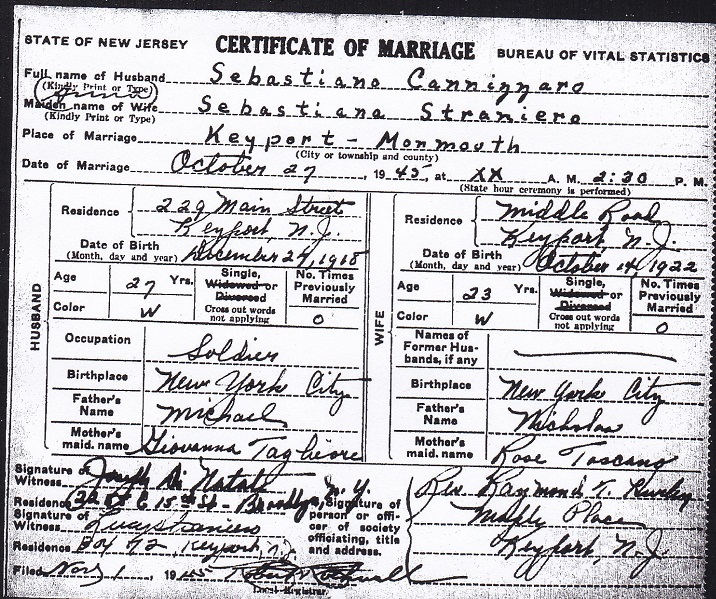 STATE OF NEW JERSEY CERTIFICATE OF MARRIAGE BUREAU OF VITAL STATISTICS
Full name of Husband Sebastiano Cannizzaro
(Kindly Print or Type)
Maiden name of Wife Sebastiana Straniero
(Kindly Print or Type)
Place of Marriage Keyport - Monmouth
(City or township and county)
Date of Marriage October 27, 1945, at XX A. M. 2:30 P. M.
(State hour ceremony is performed)
HUSBAND
Residence 229 Main Street
Keyport, N.J.
Date of Birth
(Month, day and year) December 27, 1918
Age 27 Yrs. Single, Widowed or Divorced No. Times Previously Married
Color W Cross out words not applying 0
Occupation Soldier
Birthplace New York City
Father's Name Michael
Mother's maid. name Giovanna Tagliere
WIFE
Residence Middle Road
Keyport, N.J.
Date of Birth
(Month, day and year) October 14, 1922
Age 23 Yrs. Single, Widowed or Divorced No. Times Previously Married
Color W Cross out words not applying 0
Names of Former Husbands, if any
Birthplace New York City
Father's Name Nicholas
Mother's maid. name Rose Toscano
Signature of Witness Joseph Di Natale
Residence E 15th St - Brooklyn, N.Y.
Signature of Witness Lucy Straniero
Residence Box 92, Keyport, N.J.
Signature of person or officer of society officiating, title and address.
Rev. Raymond
Place
Keyport, N.J.
Filed Nov 1, 1945
Local Registrar.